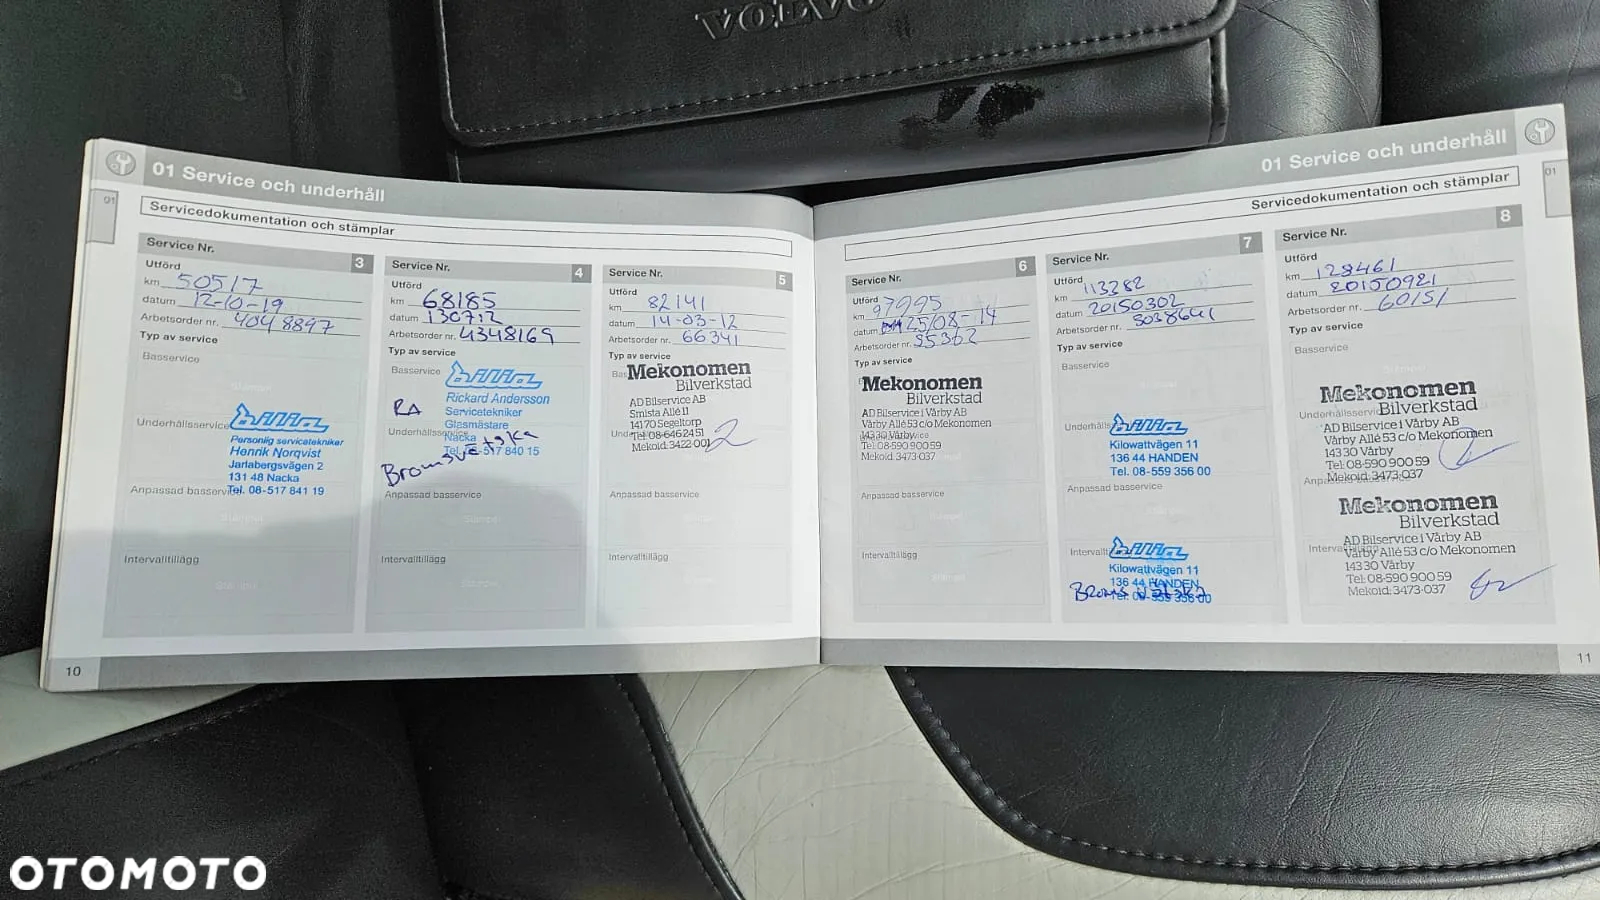 VOLVO
01 Service och underhåll
01
Servicedokumentation och stämplar
Service Nr. 3
Utförd
km 50517
datum 12-10-19
Arbetsorder nr. 4048897
Typ av service
Basservice
Stämpel
Underhållsservice
billia
Personlig servicetekniker
Henrik Norqvist
Jarlabergsvägen 2
131 48 Nacka
Tel. 08-517 841 19
Anpassad basservice
Stämpel
Intervalltillägg
Stämpel
Service Nr. 4
Utförd
km 68185
datum 130712
Arbetsorder nr. 4348169
Typ av service
Basservice
billia
Rickard Andersson
Servicetekniker
Glasmästare
Nacka
Tel. 08-517 840 15
RA
Underhållsservice
Bromsvätska
Anpassad basservice
Stämpel
Intervalltillägg
Stämpel
Service Nr. 5
Utförd
km 82141
datum 14-03-12
Arbetsorder nr. 66341
Typ av service
Mekonomen
Bilverkstad
AD Bilservice AB
Smista Allé 11
14170 Segeltorp
Tel: 08-646 24 51
Mekoid: 3422-001
Anpassad basservice
Intervalltillägg
10
01 Service och underhåll
01
Servicedokumentation och stämplar
Service Nr. 6
Utförd
km 97995
datum 25/08-14
Arbetsorder nr. 95362
Typ av service
Mekonomen
Bilverkstad
AD Bilservice i Vårby AB
Vårby Allé 53 c/o Mekonomen
143 30 Vårby
Tel: 08-590 900 59
Mekoid: 3473-037
Anpassad basservice
Stämpel
Intervalltillägg
Stämpel
Service Nr. 7
Utförd
km 113382
datum 20150302
Arbetsorder nr. 5038641
Typ av service
Basservice
Stämpel
billia
Kilowattvägen 11
136 44 HANDEN
Tel. 08-559 356 00
Anpassad basservice
Stämpel
billia
Kilowattvägen 11
136 44 HANDEN
Tel. 08-559 356 00
Service Nr. 8
Utförd
km 128461
datum 20150921
Arbetsorder nr. 60151
Typ av service
Basservice
Stämpel
Mekonomen
Bilverkstad
AD Bilservice i Vårby AB
Vårby Allé 53 c/o Mekonomen
143 30 Vårby
Tel: 08-590 900 59
Mekoid: 3473-037
Mekonomen
Bilverkstad
AD Bilservice i Vårby AB
Vårby Allé 53 c/o Mekonomen
143 30 Vårby
Tel: 08-590 900 59
Mekoid: 3473-037
11
OTOMOTO